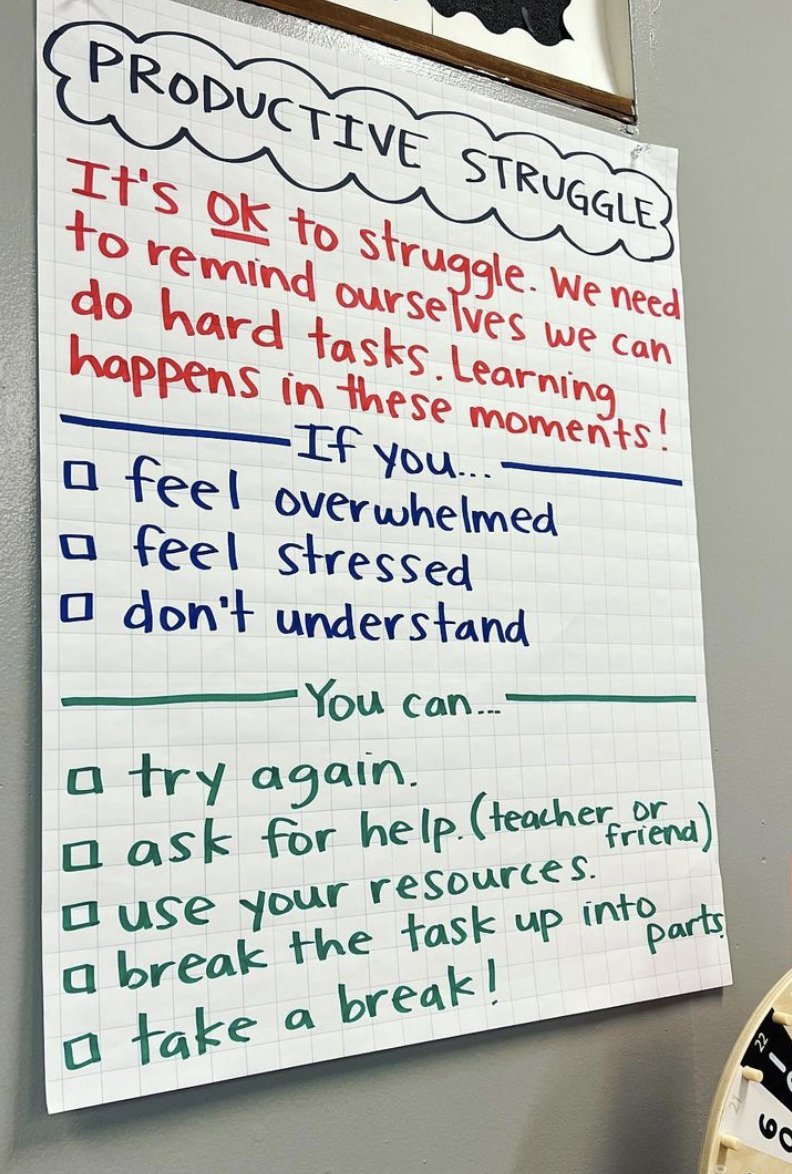 PRODUCTIVE STRUGGLE
It's OK to struggle. We need
to remind ourselves we can
do hard tasks. Learning
happens in these moments!
If you...
feel overwhelmed
feel stressed
don't understand
You can...
try again.
ask for help. (teacher or
friend)
use your resources.
break the task up into
parts.
take a break!
22
21